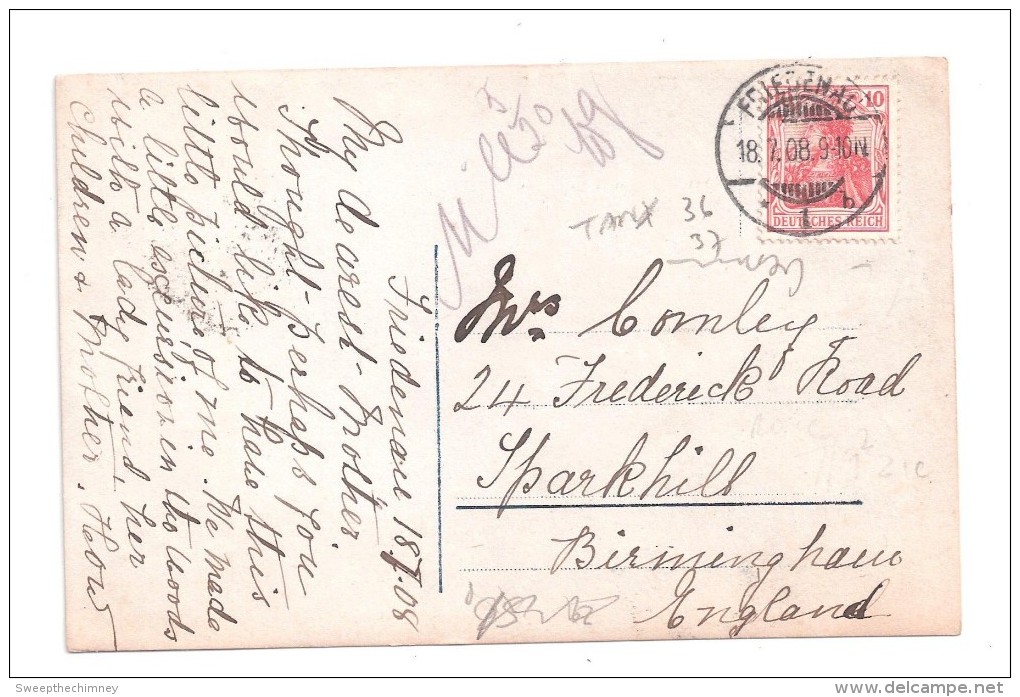 Friedenau 18.7.08
My dearest Mother.
Thought perhaps you
would like to have this
little picture of me. We made
a little excursion in the woods
with a lady friend, her
children & Mother.
FRIEDENAU
18.7.08.9-10N.
* 1 b
10
DEUTSCHES REICH
36
37
Mrs Comley
24 Frederick Road
Sparkhill
Birmingham
England
Sweepthechimney
delcampe.net